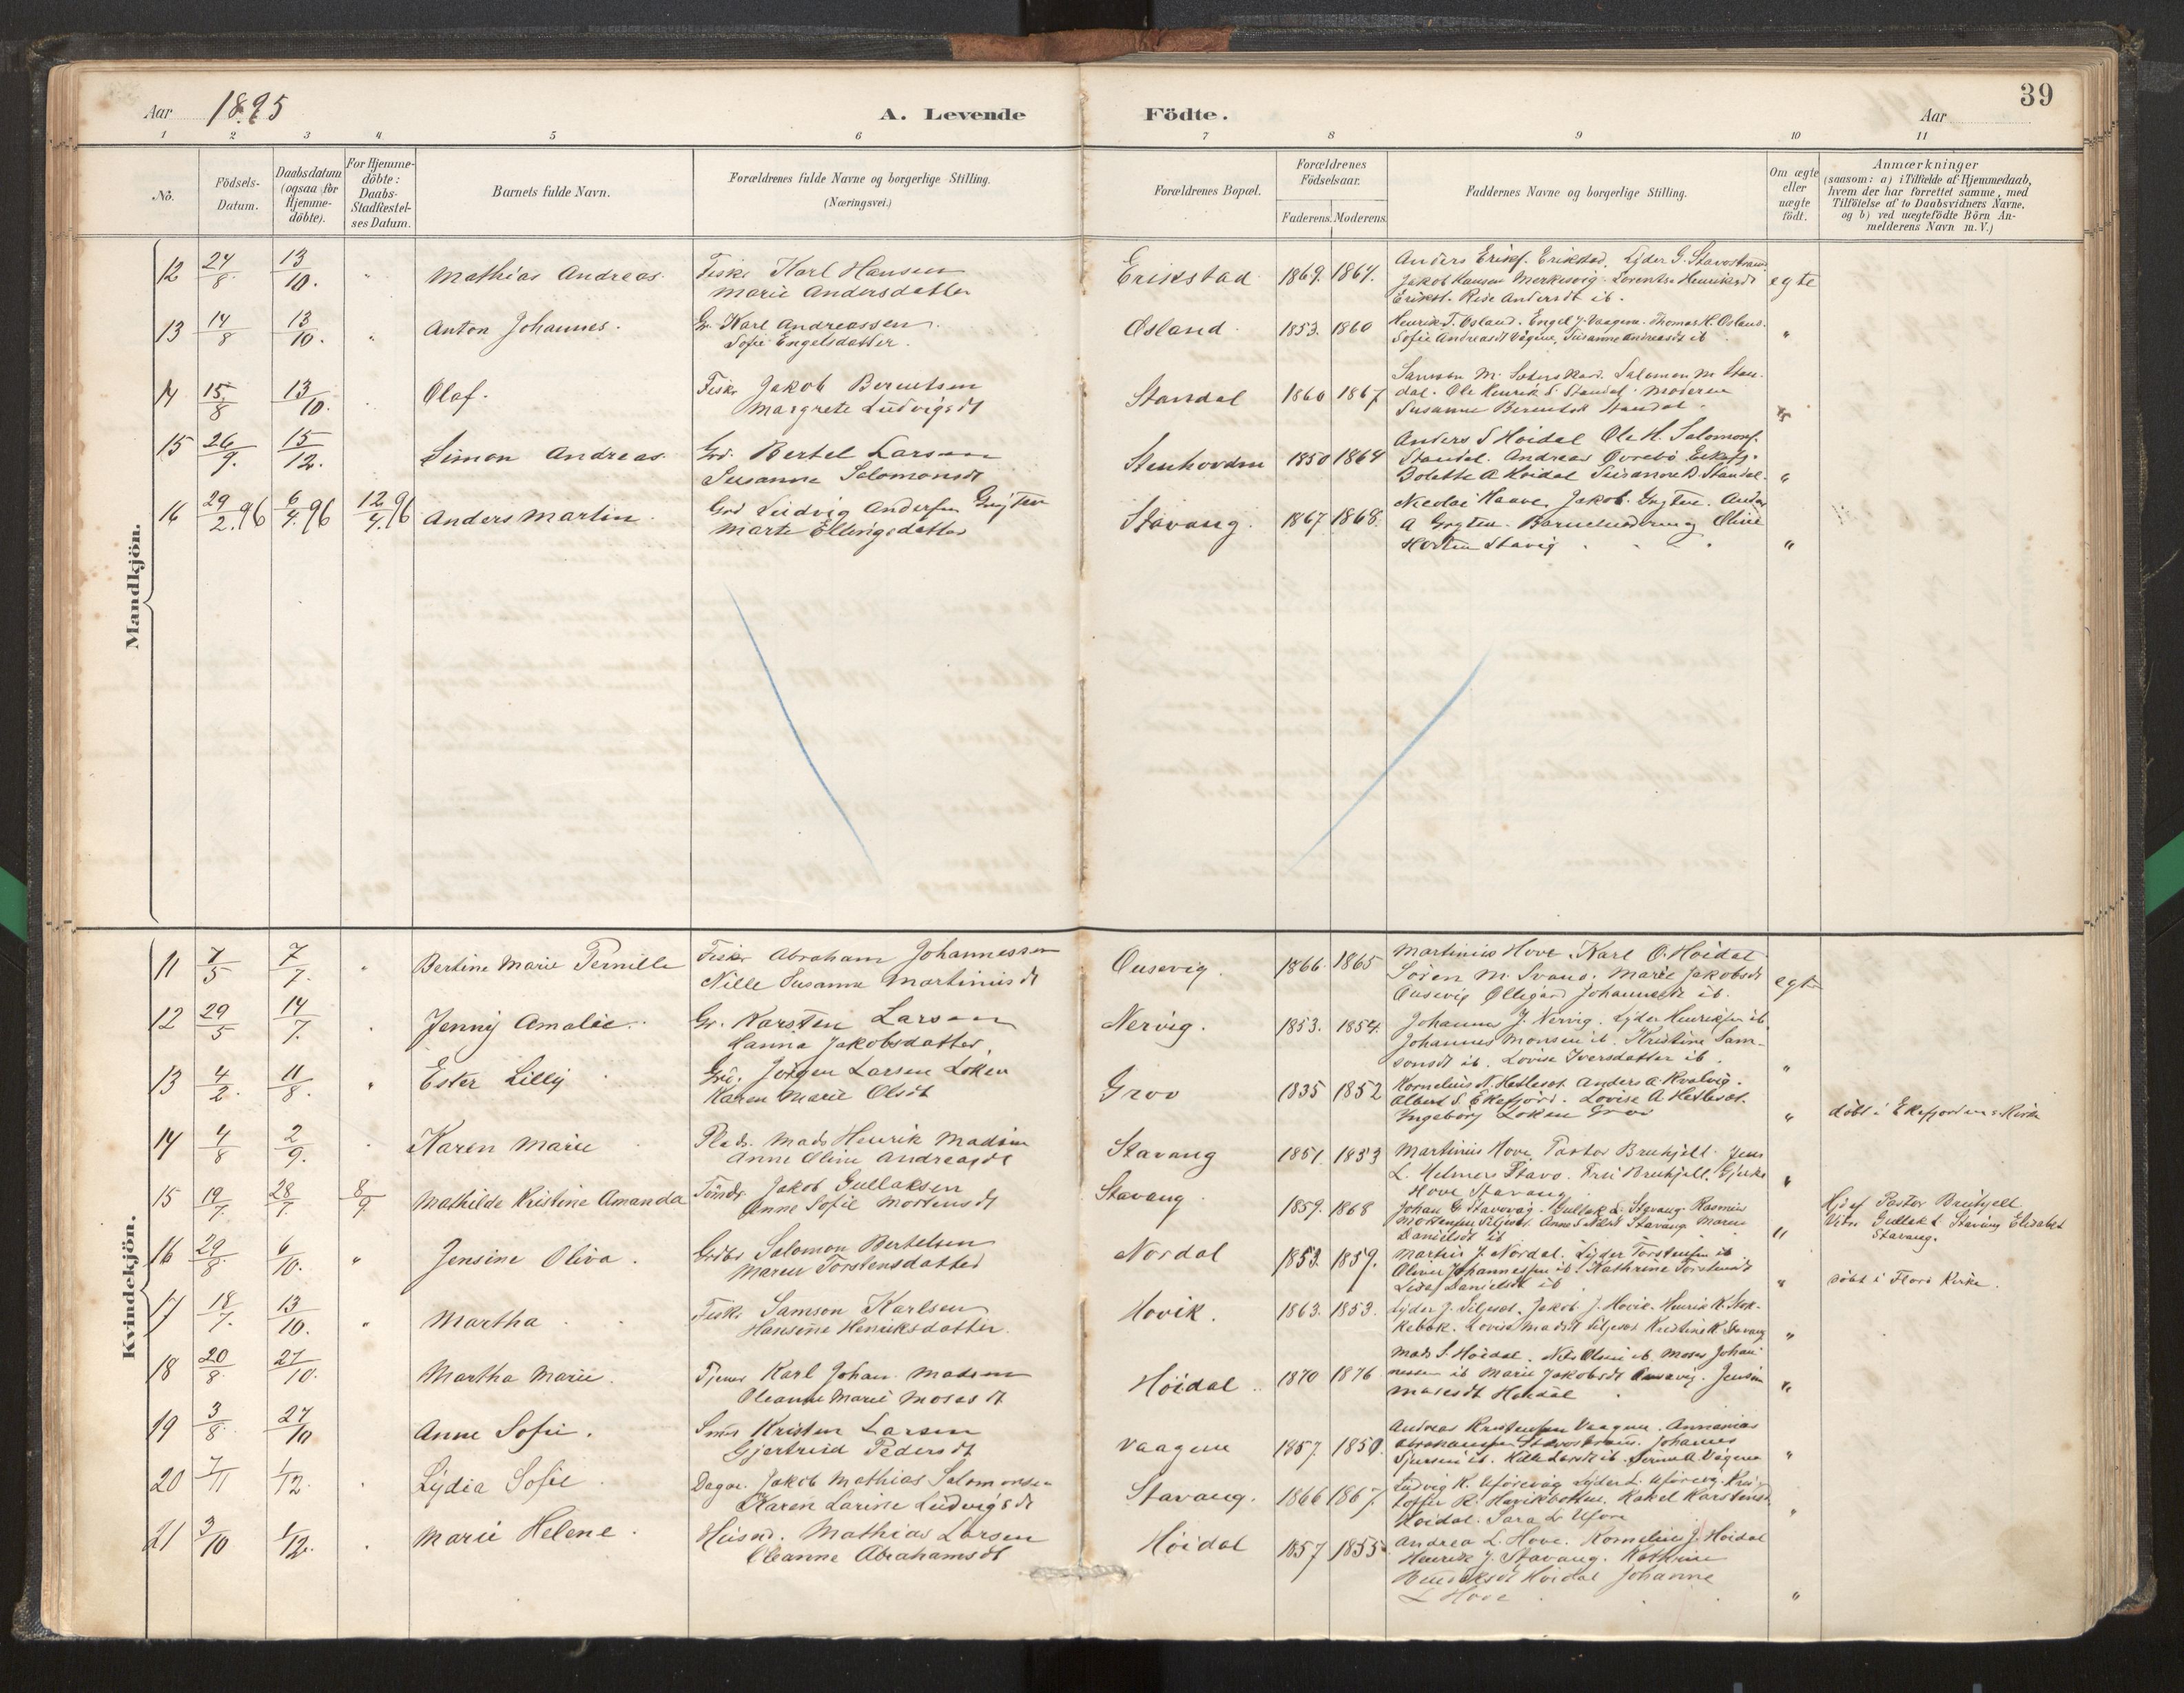 39
Aar 1895 A. Levende Födte. Aar
1 2 3 4 5 6 7 8 9 10 11
No.
Födsels-
Datum.
Daabsdatum
(ogsaa for
Hjemme-
döbte).
For Hjemme-
döbte:
Daabs-
Stadfestel-
ses Datum.
Barnets fulde Navn.
Forældrenes fulde Navne og borgerlige Stilling.
(Næringsvei.)
Forældrenes Bopæl.
Forældrenes
Födselsaar.
Faderens. Moderens.
Faddernes Navne og borgerlige Stilling.
Om ægte
eller
uægte
födt.
Anmærkninger
(saasom: a) i Tilfælde af Hjemmedaab,
hvem der har forrettet samme, med
Tilföielse af to Daabsvidners Navne,
og b) ved uægtefödte Börn An-
melderens Navn m. V.)
Mandkjön.
12 24/8 13/10. " Mathias Andreas. Fisker Karl Hansen Erikstad 1869. 1867. Anders Eriks. Erikstad. Lyder G. Stavostrand
Marie Andersdatter Jakob Hansen egte
Andersdt ib.
13 14/8 13/10. " Anton Johannes. Gr. Karl Andreassen. Osland. 1853. 1860 Henrik T. Osland. Engel J. Vaagene. Thomas H. Osland.
Sofie Engelsdatter. Sofie Andreasdt Vågene, Susanne Andreasdt ib "
14 15/8 13/10. Olaf. Fisker Jakob Berentsen Standal 1860 1867 Salomon M. Stan-
Margrete Ludvigsdt dal. Ole Henrik S. Standal. Moderen
Susanne Berentsdt Standal. "
15 26/9. 15/12. Simon Andreas. Grd. Bertel Larsen Stenhovden 1850 1864 Anders S Höidal Ole H. Salomons.
Susanne Salomonsdt Standal. Andreas Övrebö
Bolette A Höidal Susanne B. Standal. "
16 29/2.96 6/4.96 12/4.96 Anders Martin. Grd Ludvig Andersen Grytten Stavang. 1867 1868. Nicolai Haave, Jakob Grytten. Anders
Marte Ellingsdatter A Grytten. Barnemoderen og Oline
Stavig "
Kvindekjön.
11 7/5 7/7. " Bertine Marie Pernille Fisker Abraham Johannessen Ausevig. 1866. 1865 Martinius Hove. Karl O. Höidal
Nille Susanne Martiniusdt Sören M. Svanö. Marie Jakobsdt egte
Ausevig Johannesdt ib.
12 29/5 14/7. " Jenny Amalie. Gr. Karsten Larsen Nervig. 1853. 1854. Johannes J. Nervig. Lyder Henriksen ib.
Hanna Jakobsdatter Johannes Monsen ib. Kristine Sam-
sonsdt ib. Lovise Iversdatter ib. "
13 4/2. 11/8. " Ester Lilly Jörgen Larsen Löken Grov 1835 1852 Kornelius N. Hetlesæt. Anders A. Kvalvig.
Karen Marie Olsdt Albert S. Ekefjord. Lovise A Hetlesæt.
Ingeborg Löken Grov " döbt i Ekefjordens Kirke
14 4/8 2/9. " Karen Marie Mads Henrik Madsen Stavang 1851. 1853 Martinius Hove. Pastor Bruhjell. Jens
Anne Oline Andreasdt L. Helmers Stavö. Fru Bruhjell.
Hove Stavang "
15 19/7. 28/7. 8/9 Mathilde Kristine Amanda Jakob Gullaksen Stavang. 1859. 1868 Johan G Gullak L. Stavang. Rasmus
Anne Sofie Mortensdt Mortensen Siljesæt. Anne S Nilsdt Stavang. Maren
Danielsdt ib "
Hjd af Pastor Bruhjell
Vitn. Gullak L Stavang Elisabet
Stavang.
16 29/8 6/10. " Jensine Oliva. Salomon Bertelsen Nordal 1853. 1859. Martin J. Nordal. Lyder Torstensen ib
Maren Torstensdatter Oliver Johannessen ib. Kathrine Torstensdt
Danielsdt ib. " döbt i Florö Kirke.
17 18/7. 13/10. " Martha Fisker Samson Karlsen Hovik. 1863. 1853. Lyder J. Siljesæt. Jakob J. Hovik. Henrik K. Stok-
Hansine Henriksdatter. kebæk. Lovise Madsdt Siljesæt Kristine K Stavang "
18 20/8. 27/10. Martha Marie. Tjener Karl Johan Madsen Höidal. 1870 1876 Mads S. Höidal. Nils Olsen ib. Moses Johan-
Oleanne Marie Mosesdt nessen ib Marie Jakobsdt Ausevig. Jensine
Mosesdt Höidal "
19 3/8. 27/10 Anne Sofie. Kristen Larsen Vaagene 1857. 1850. Andreas Kristensen Vaagene. Annanias
Gjertrud Pedersdt Abrahamsen Stavostrand. Johannes
Sjursen ib. "
20 7/11 1/12. " Lydia Sofie Dagar. Jakob Mathias Salomonsen Stavang. 1866 1867. Ludvig K. Kris-
Karen Larine Ludvigsdt toffer R. Rakel Karstensdt
Höidal. Sara L "
21 3/10 1/12. " Marie Helene. Husmd. Mathias Larsen Höidal 1857 1855. Andrea L. Hove. Kornelius J. Höidal
Oleanne Abrahamsdt Henrik J. Stavang. Kathrine
Höidal Johanne
L Hove "